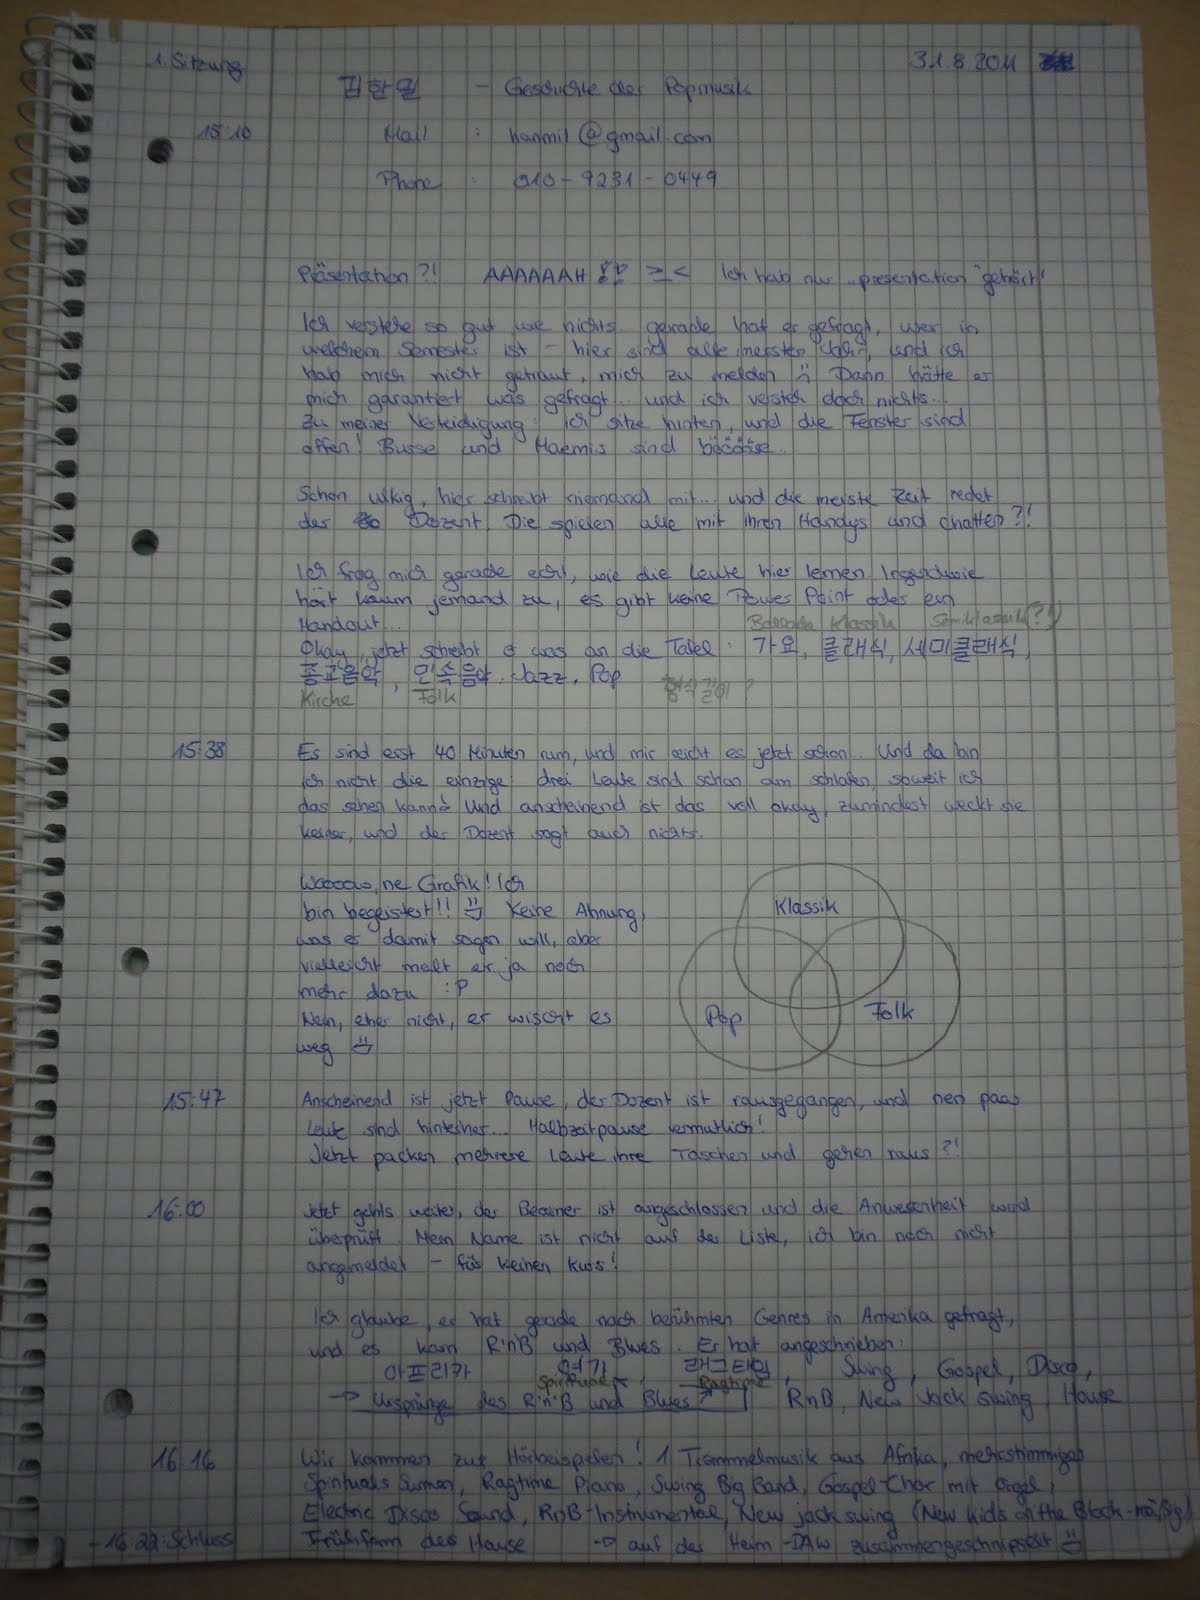 1. Sitzung
31.8.2011
김한일 - Geschichte der Popmusik
15:10
Mail : hanmil@gmail.com
Phone : 010-9231-0449
Präsentation?! AAAAAAH !! >_< Ich hab nur "presentation" gehört!
Ich verstehe so gut wie nichts. gerade hat er gefragt, wer in
welchem Semester ist - hier sind alle meisten Jahr, und ich
hab mich nicht getraut, mich zu melden :( Dann hätte er
mich garantiert was gefragt... und ich versteh doch nichts...
Zu meiner Verteidigung: ich sitze hinten, und die Fenster sind
offen! Busse und Maemis sind bööööse...
Schon ulkig, hier schreibt niemand mit... und die meiste Zeit redet
der Dozent. Die spielen alle mit ihren Handys und chatten?!
Ich frag mich gerade echt, wie die Leute hier lernen. Irgendwie
hört kaum jemand zu, es gibt keine Power Point oder ein
Handout...
Ballade Klassik Semiklassik(?)
Okay, jetzt schreibt er was an die Tafel: 가요, 클래식, 세미클래식,
종교음악, 민속음악, Jazz, Pop
Kirche Folk 형식길이?
15:38 Es sind erst 40 Minuten rum, und mir reicht es jetzt schon... Und da bin
ich nicht die einzige: drei Leute sind schon am schlafen, soweit ich
das sehen kann! Und anscheinend ist das voll okay, zumindest weckt sie
keiner, und der Dozent sagt auch nichts.
Wooow, ne Grafik! Ich
bin begeistert!! :) Keine Ahnung,
was er damit sagen will, aber
vielleicht malt er ja noch
mehr dazu :P
Nein, eher nicht, er wischt es
weg :)
Klassik
Pop
Folk
15:47 Anscheinend ist jetzt Pause, der Dozent ist rausgegangen, und nen paar
Leute sind hinterher... Halbzeitpause vermutlich!
Jetzt packen mehrere Leute ihre Taschen und gehen raus?!
16:00 Jetzt gehts weiter, der Beamer ist angeschlossen und die Anwesenheit wird
überprüft. Mein Name ist nicht auf der Liste, ich bin noch nicht
angemeldet - für keinen Kurs!
Ich glaube, er hat gerade nach berühmten Genres in Amerika gefragt,
und es kam R'n'B und Blues. Er hat angeschrieben:
아프리카, 영가, 래그타임, Swing, Gospel, Disco,
Spirituals Ragtime
-> Ursprünge des R'n'B und Blues RnB, New Jack swing, House
16:16 Wir kommen zur Hörbeispielen! 1 Trommelmusik aus Afrika, mehrstimmiges
Spirituals Ragtime Piano, Swing Big Band, Gospel-Chor mit Orgel,
Electric Disco Sound, RnB-Instrumental, New jack swing (New kids on the Block-mäßig)
- 16:22: Schluss
Frühform des House -> auf der Heim-DAW zusammengeschnipselt :)